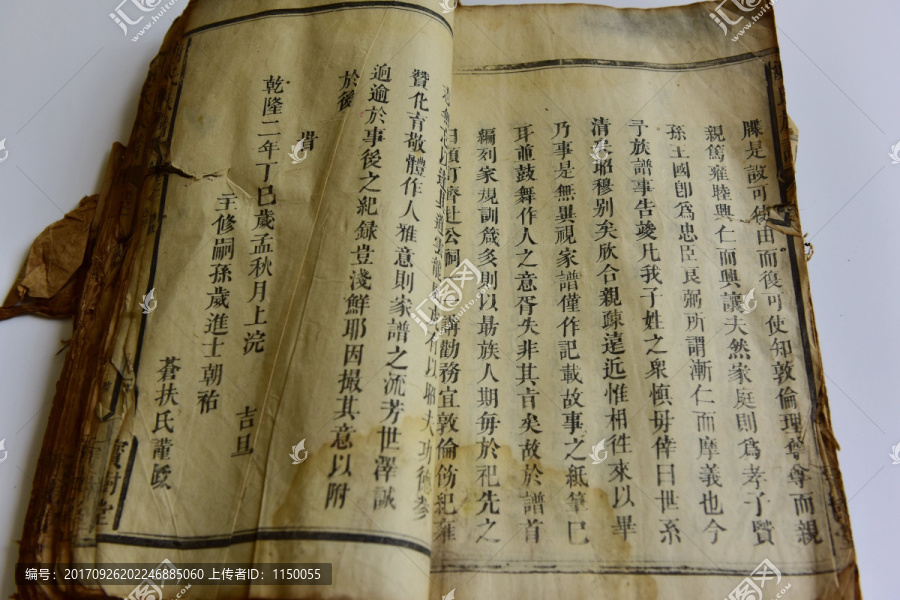 牒是誠可使由而復可使知敦倫理尊尊而親
親篤雍睦興仁而興讓夫然家庭則為孝子賢
孫王國卽為忠臣良弼所謂漸仁而摩義也今
于族譜事告竣凡我子姓之衆慎毋倖曰世系
清矣昭穆别矣欣合親疎遠近惟相徃來以畢
乃事是無異視家譜僅作記載故事之紙筆已
耳並鼓舞作人之意胥失非其言矣故於譜首
編列家規訓箴多則以勗族人期每於祀先之
日頂訂齊赴公祠一一講勸務宜敦倫飭紀雍
有以昭夫功德參
贊化育敬體作人雅意則家譜之流芳世澤誠
逈逾於事後之紀録豈淺鮮耶因撮其意以附
於後
時
乾隆二年丁巳歲孟秋月上浣 吉旦
主修嗣孫歲進士朝祐
蒼扶氏謹跋
寶樹堂
编号：20170926202246885060 上传者ID：1150055
汇图网